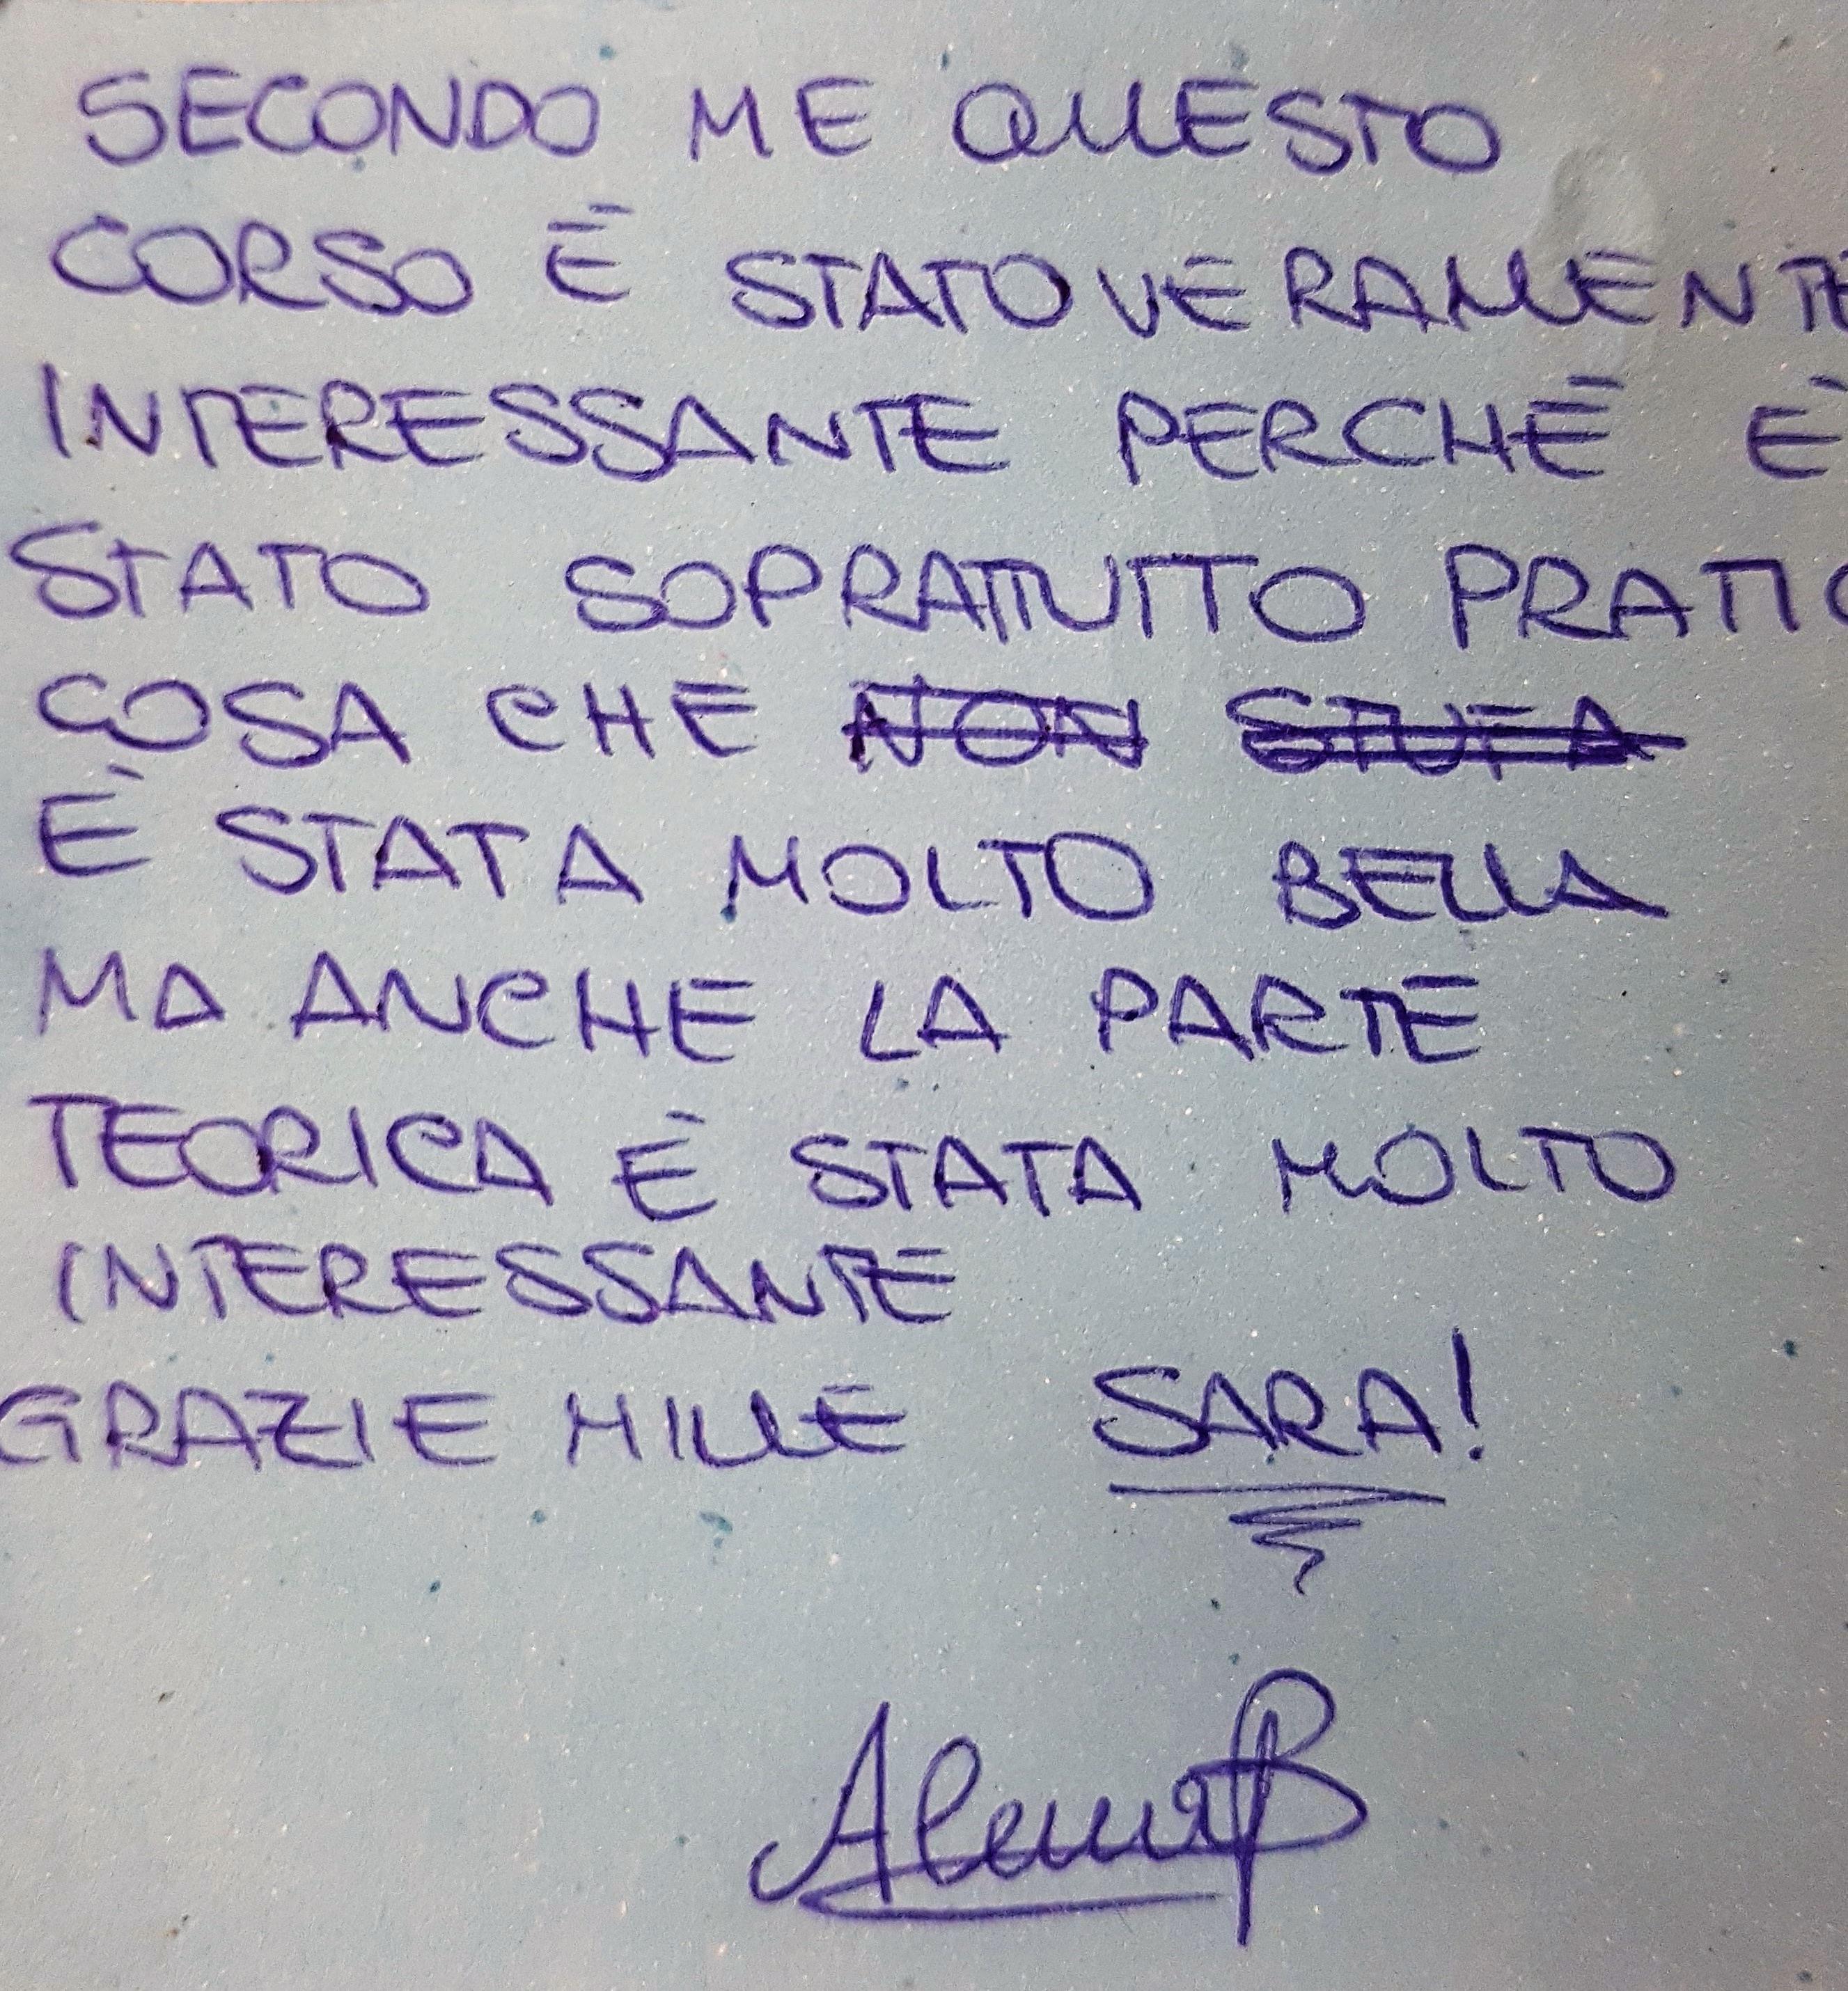 SECONDO ME QUESTO
CORSO È STATO VERAMENTE
INTERESSANTE PERCHÈ È
STATO SOPRATTUTTO PRATIC
COSA CHE NON STUFA
È STATA MOLTO BELLA
MA ANCHE LA PARTE
TEORICA È STATA MOLTO
INTERESSANTE
GRAZIE MILLE SARA!